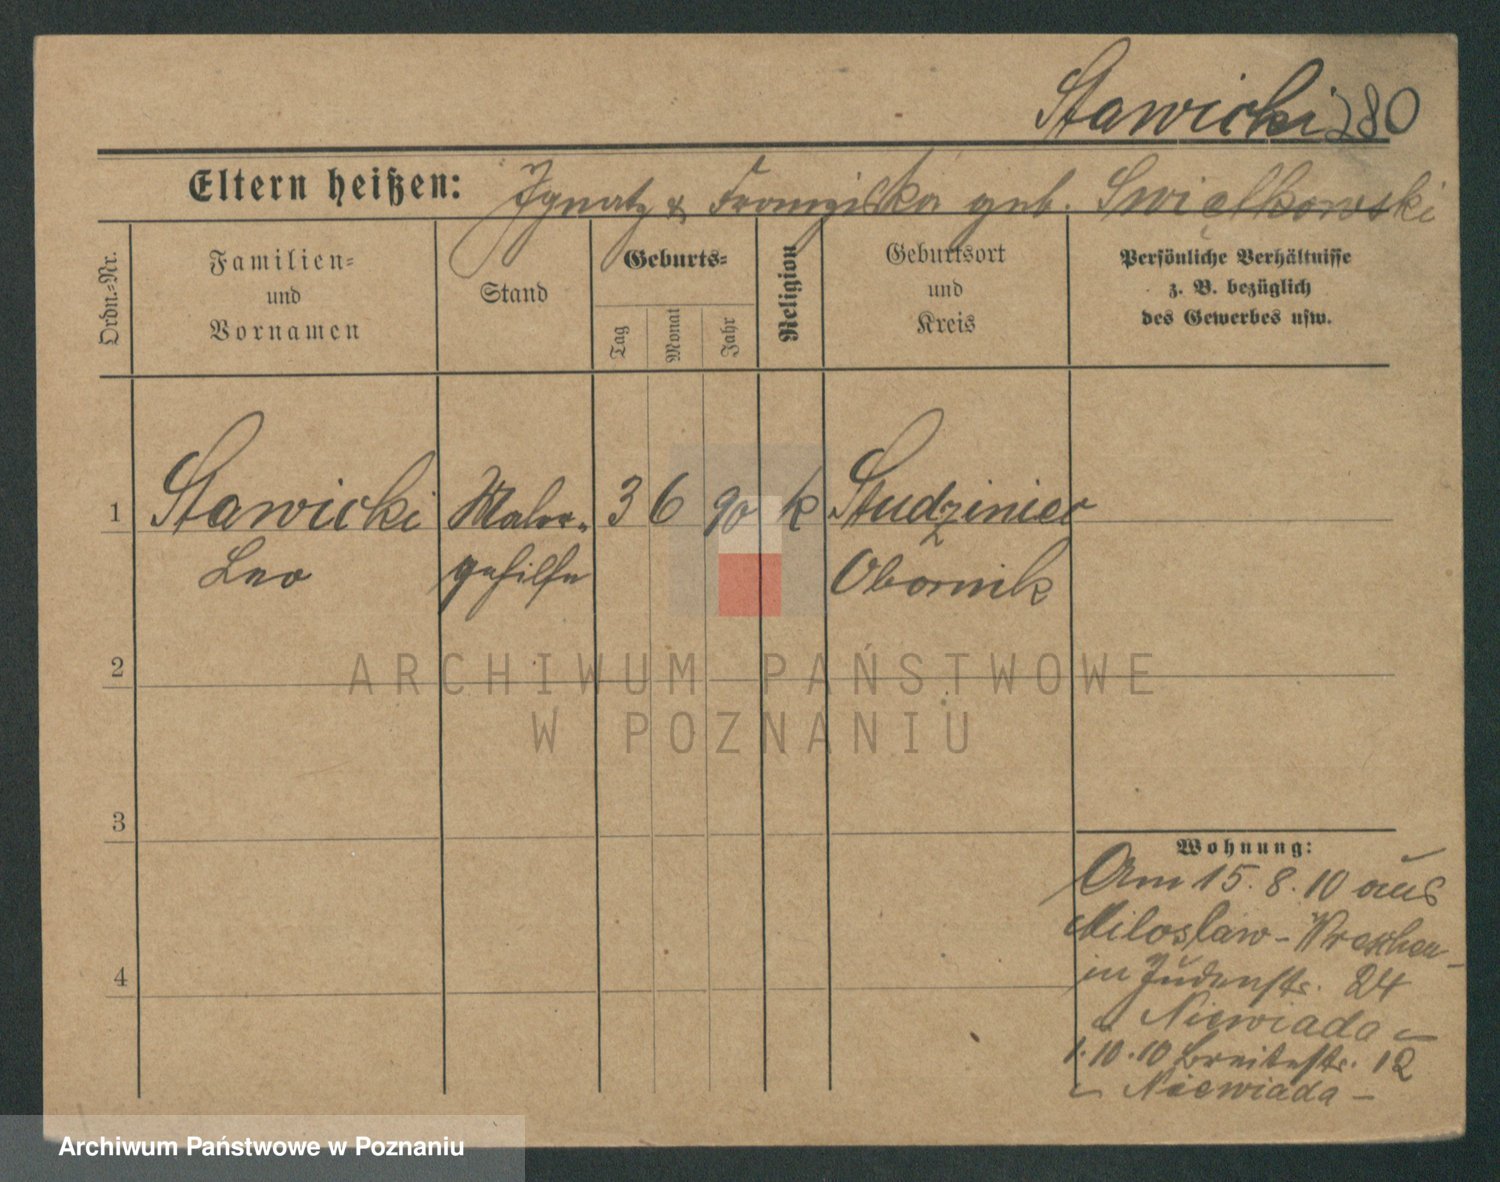 Stawicki 280
Eltern heißen: Ignatz & Franziska geb. Swięlkowski
Ordn.-Nr.
Familien-
und
Vornamen
Stand
Geburts-
Tag
Monat
Jahr
Religion
Geburtsort
und
Kreis
Persönliche Verhältnisse
z. B. bezüglich
des Gewerbes usw.
1 Stawicki Maler- 3 6 90 k Studziniec
Leo gehilfe Obornik
2
3
4
Wohnung:
Am 15.8.10 aus
Miloslaw-Wreschen
in Judenstr. 24
Niewiada
1.10.10 Breitestr. 12
Niewiada
ARCHIWUM PAŃSTWOWE
W POZNANIU
Archiwum Państwowe w Poznaniu